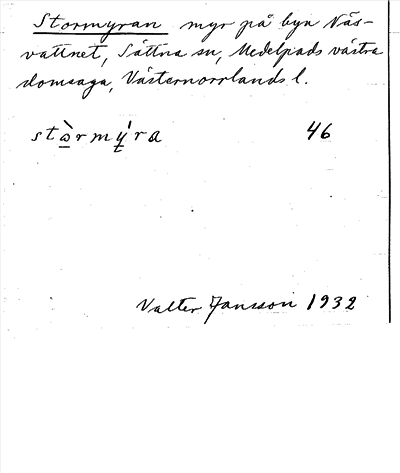 Stormyran myr på byn Näs-
vattnet, Sättna sn, Medelpads västra
domsaga, Västernorrlands l.
stὰrmý̨ra 46
Valter Jansson 1932